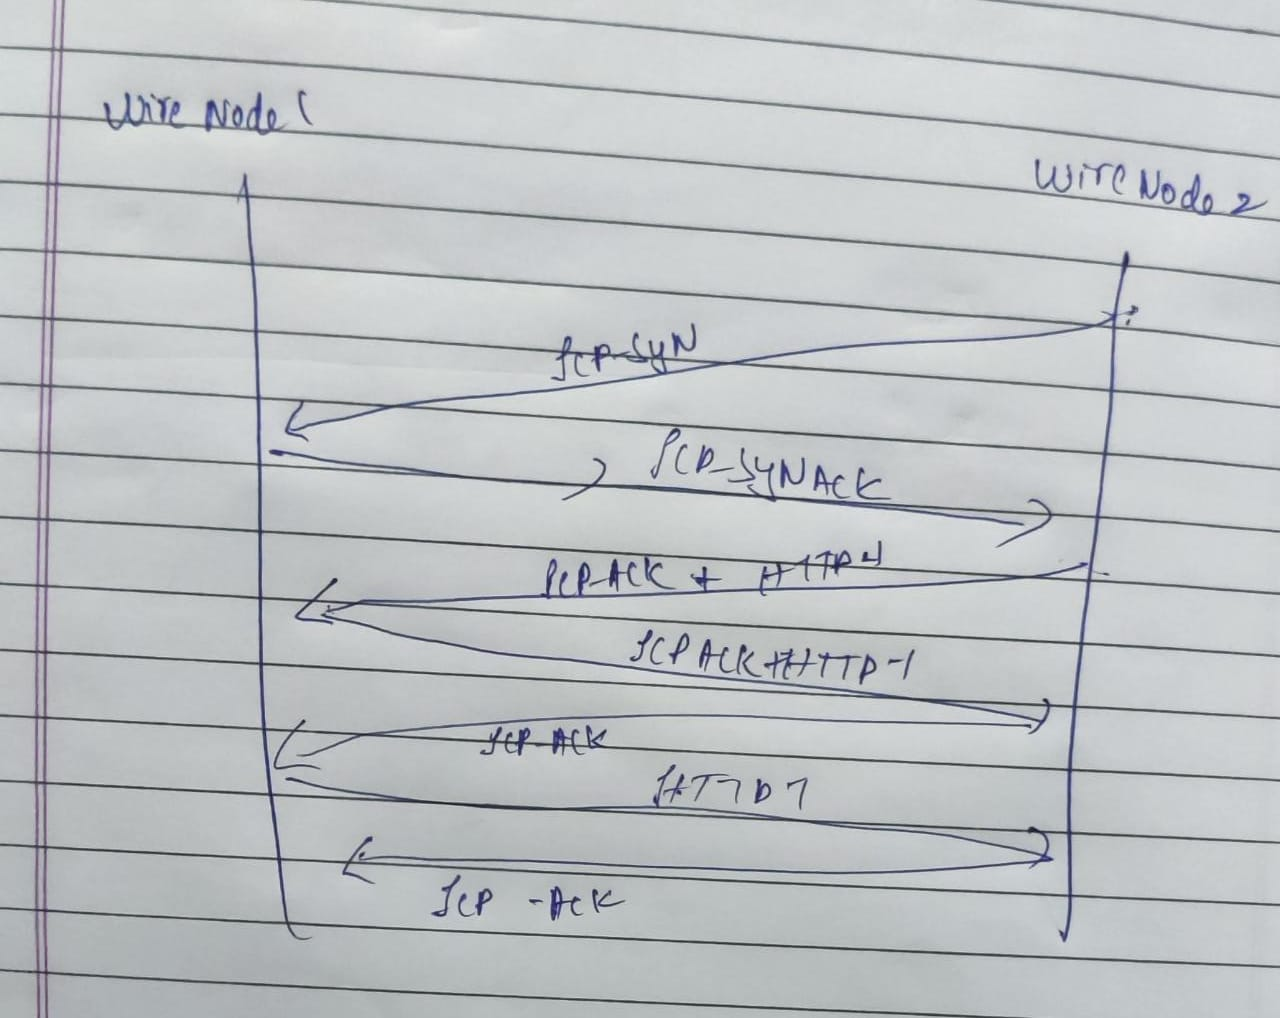 Wire Node 1
Wire Node 2
TCP-SYN
TCP-SYNACK
TCP-ACK + HTTP
TCP ACK + HTTP-1
TCP-ACK
HTTP
TCP -ACK